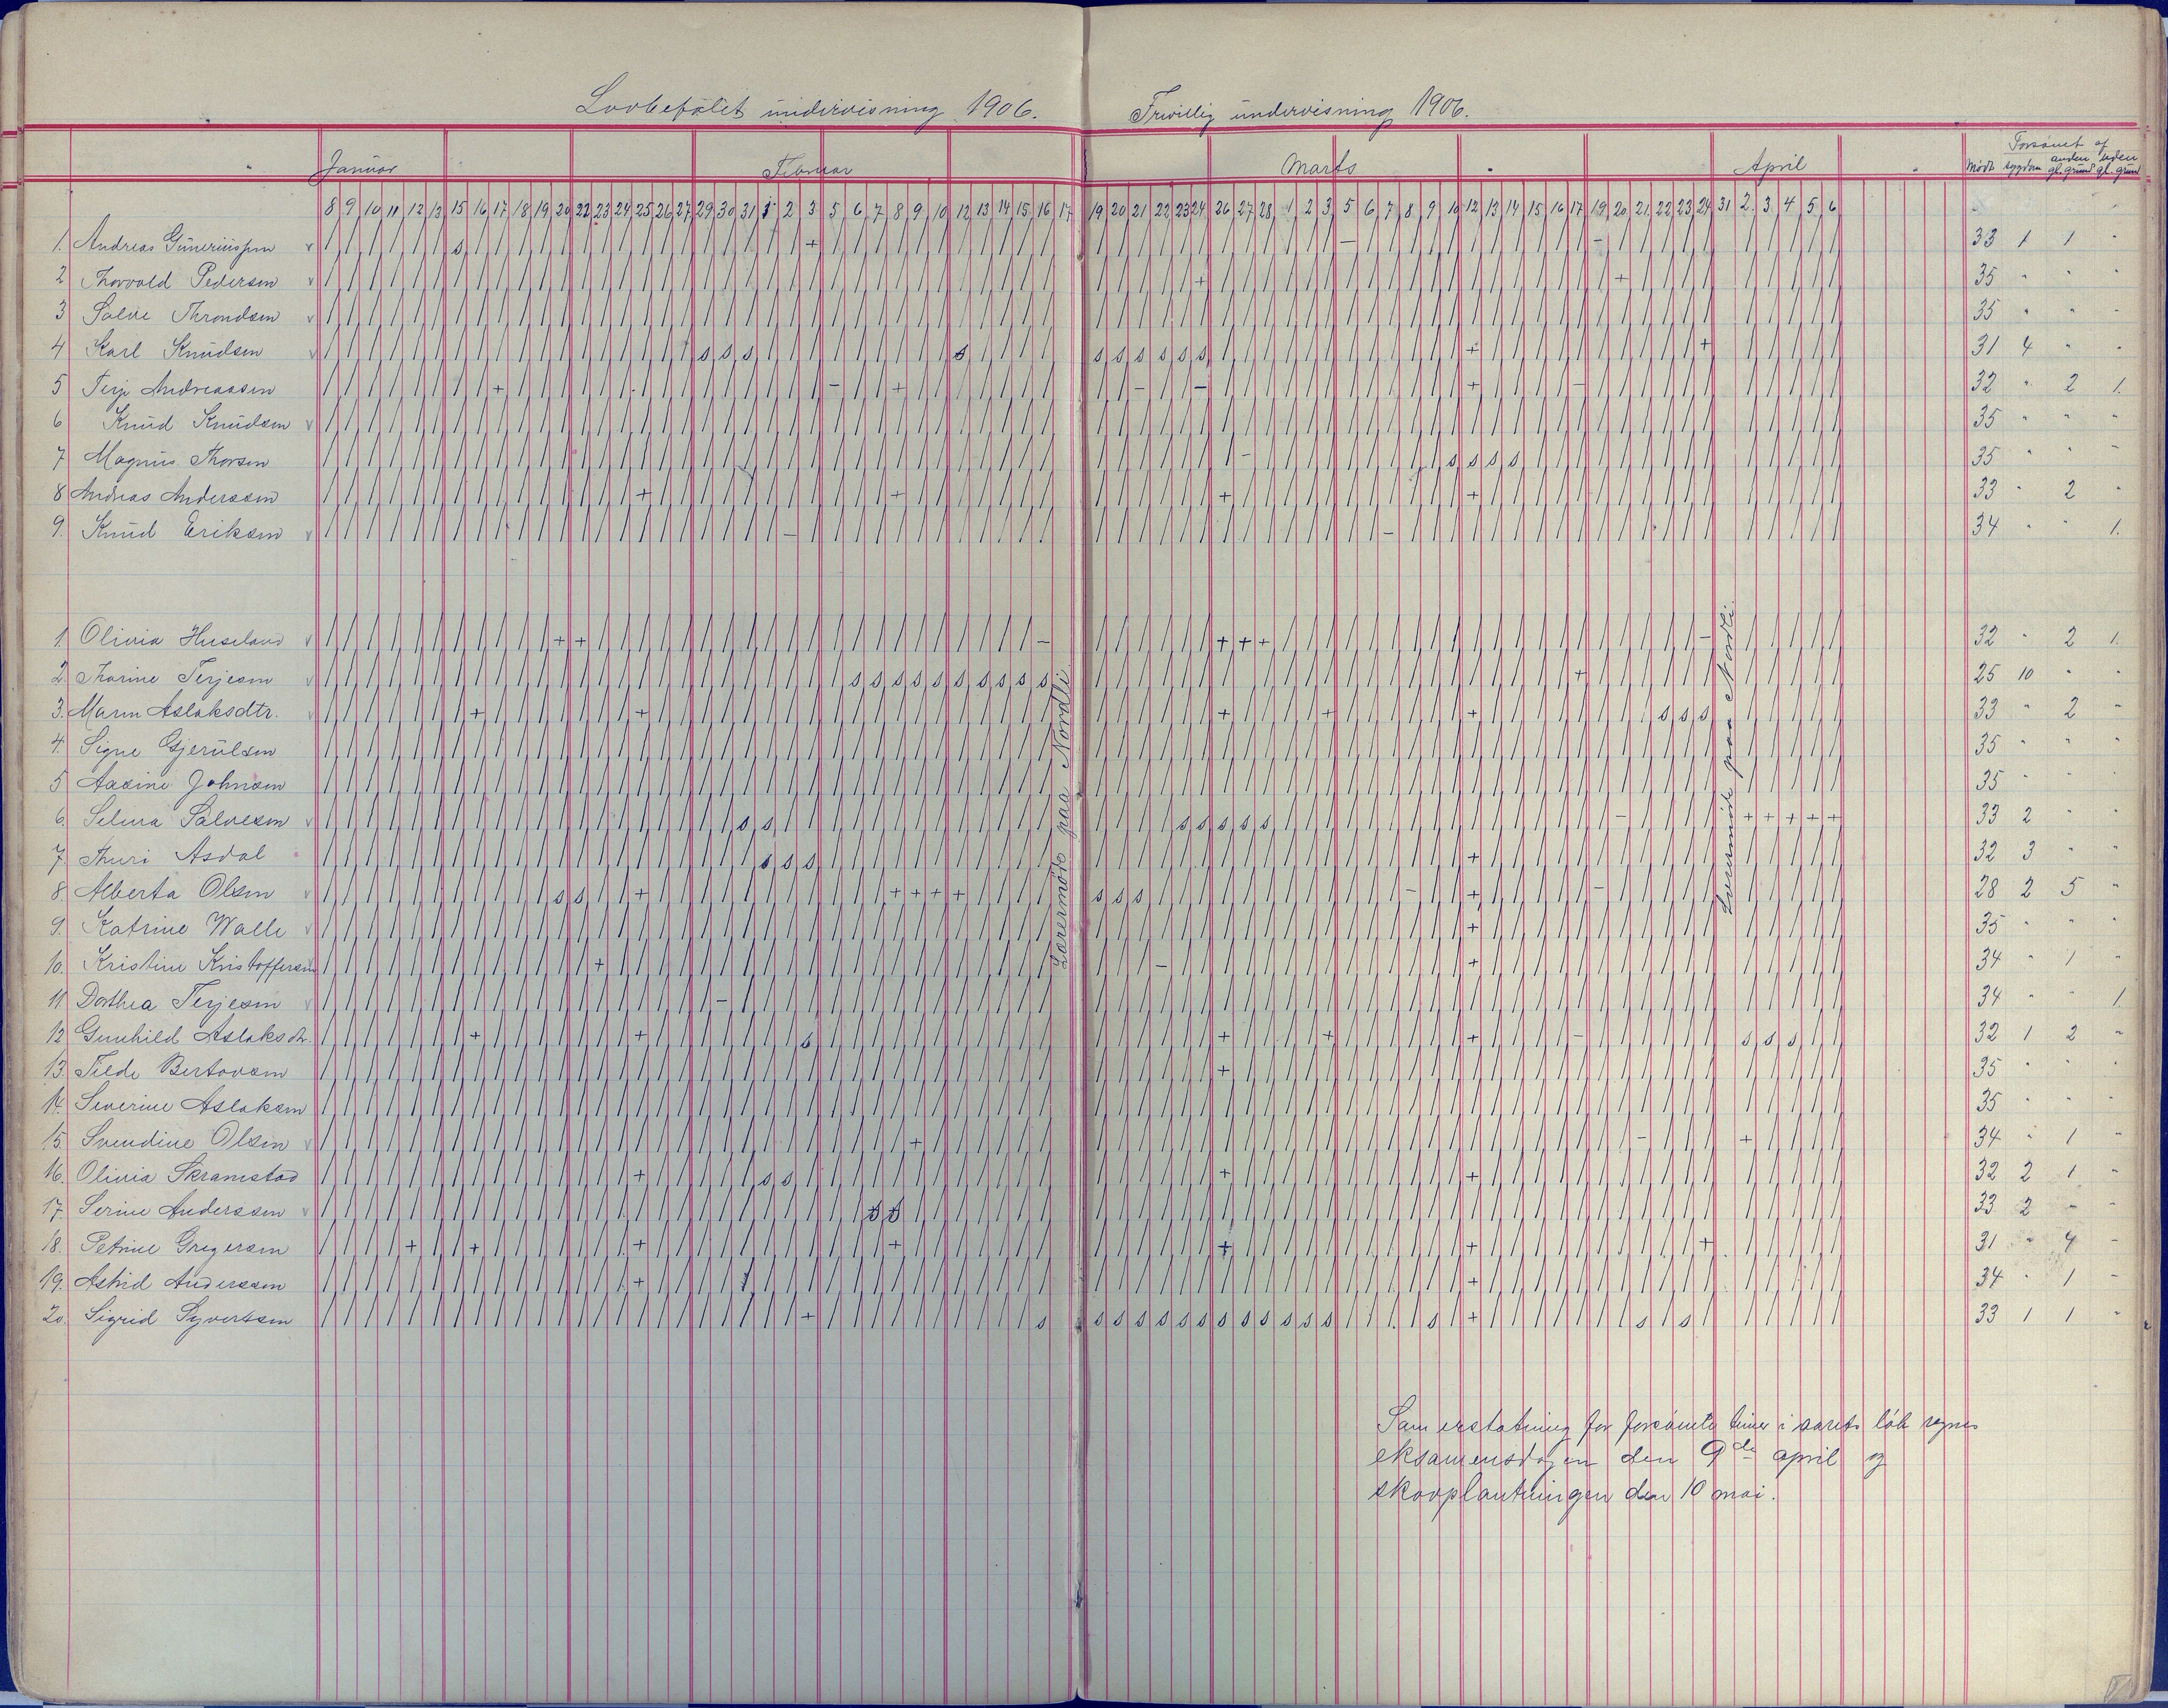 Lovbefalet undervisning 1906. Frivillig undervisning 1906.
Januar Februar Marts April Mødt Forsømt af sygdom anden gl. grund uden gl. grund
8 9 10 11 12 13 15 16 17 18 19 20 22 23 24 25 26 27 29 30 31 1 2 3 5 6 7 8 9 10 12 13 14 15 16 17 19 20 21 22 23 24 26 27 28 1 2 3 5 6 7 8 9 10 12 13 14 15 16 17 19 20 21 22 23 24 31 2 3 4 5 6
1. Andreas Guneriussen 33 1 1 "
2 Thorvald Pedersen 35 " " "
3 Salve Throndsen 35 " " "
4 Karl Knudsen 31 4 " "
5 Terje Andreassen 32 " 2 1.
6 Knud Knudsen 35 " " "
7 Magnus Thorsen 35 " " "
8 Andreas Anderssen 33 " 2 "
9. Knud Eriksen 34 " " 1.
1. Olivia Huseland 32 " 2 1.
2. Thorine Terjesen 25 10 " "
3. Maren Aslaksdtr. 33 " 2 "
4. Signe Gjerulsen 35 " " "
5 Aasine Johnsen 35 " " "
6. Selma Salvesen 33 2 " "
7. Thuri Asdal 32 3 " "
8. Alberta Olsen 28 2 5 "
9. Katrine Walle 35 " " "
10. Kristine Kristoffersen 34 " 1 "
11 Dorthea Terjesen 34 " " 1
12 Gunhild Aslaksdtr. 32 1 2 "
13. Tilde Bertovsen 35 " " "
14. Severine Aslaksen 35 " " "
15. Svendine Olsen 34 " 1 "
16. Olivia Skramstad 32 2 1 "
17. Serine Anderssen 33 2 " "
18. Petrine Gregersen 31 " 4 "
19. Astrid Anderssen 34 " 1 "
20. Sigrid Syvertsen 33 1 1 "
Lærermøde paa Nordli.
Lærermøde paa Nordli.
Som erstatning for forsømte timer i aarets løb regnes
eksamensdagen den 9de april og
skovplantningen den 10 mai.